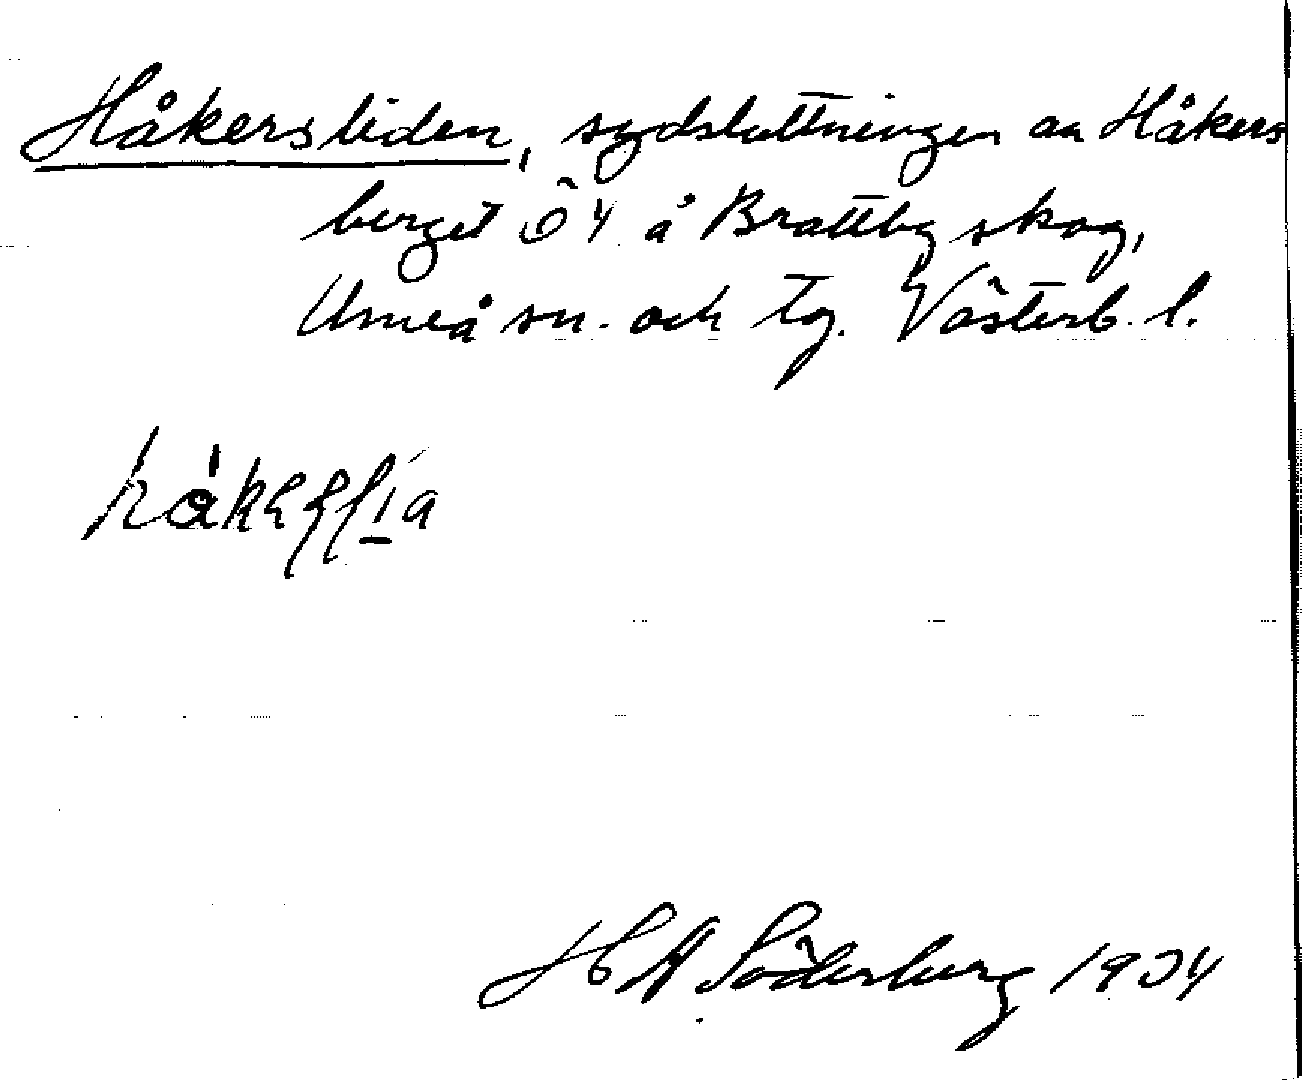 Håkersliden, sydsluttningen av Håkers
berget Ö4 å Brattby skog,
Umeå sn. och tg. Västerb. l.
H Söderberg 1934